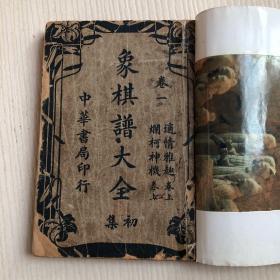 卷一
適情雅趣 卷上
爛柯神機 卷七
象棋譜大全
初集
中華書局印行